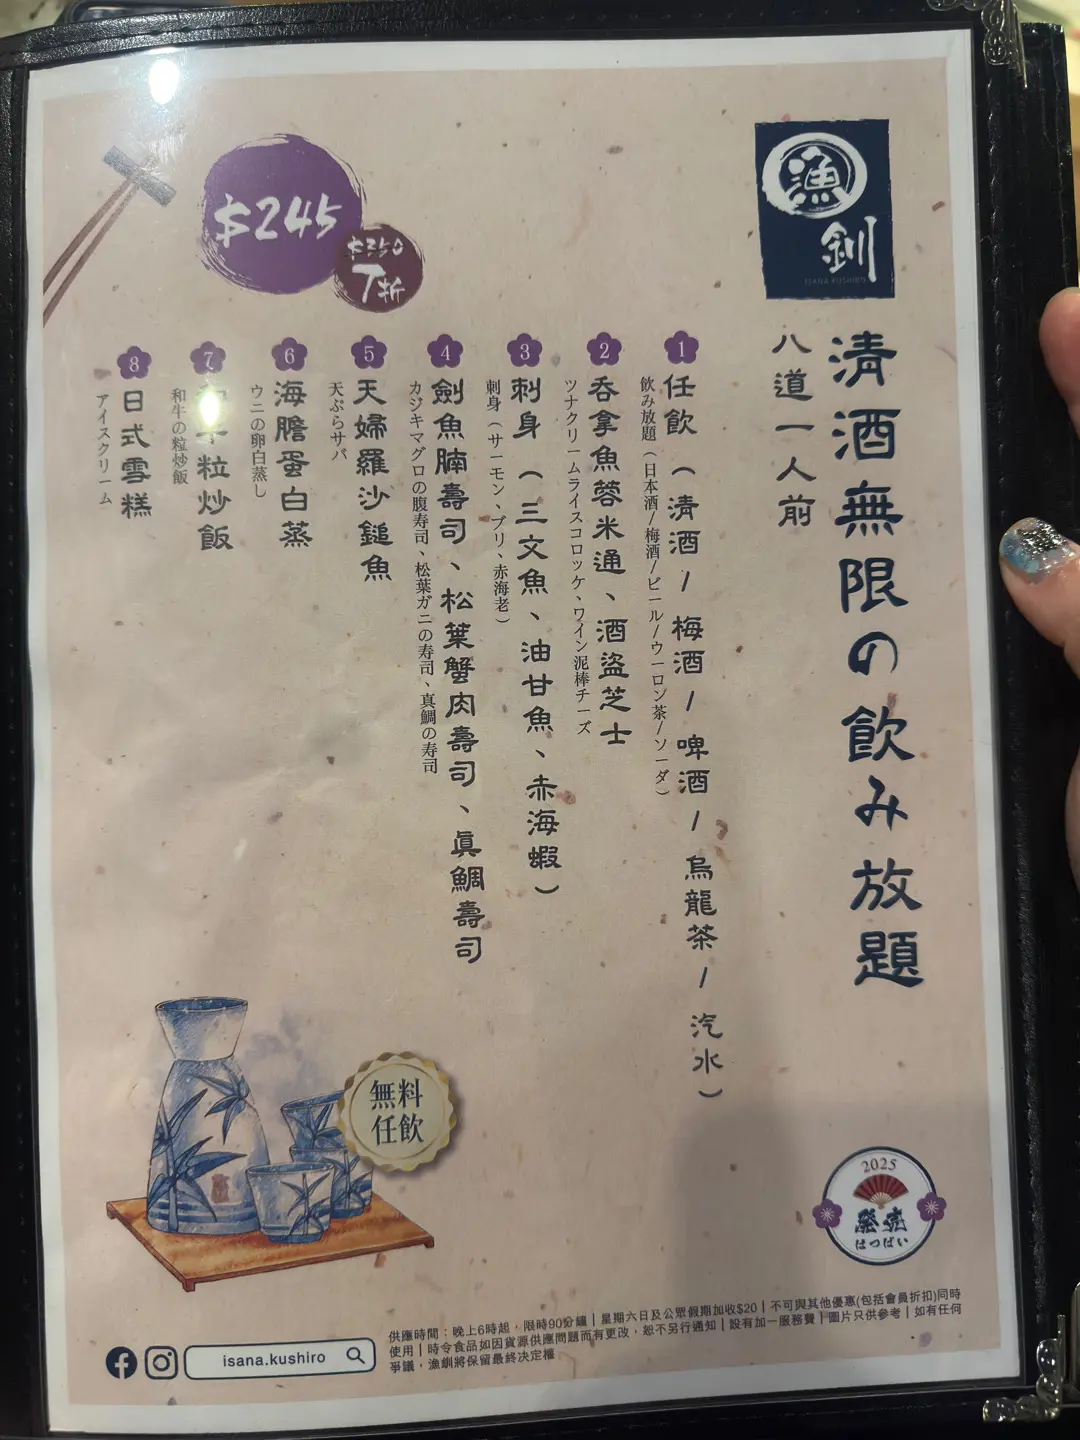 漁
釧
ISANA KUSHIRO
$245
$350
7折
清酒無限の飲み放題
八道一人前
1
任飲（清酒/梅酒/啤酒/烏龍茶/汽水）
飲み放題（日本酒/梅酒/ビール/ウーロン茶/ソーダ）
2
吞拿魚蓉米通、酒盜芝士
ツナクリームライスコロッケ、ワイン泥棒チーズ
3
刺身（三文魚、油甘魚、赤海蝦）
刺身（サーモン、ブリ、赤海老）
4
劍魚腩壽司、松葉蟹肉壽司、真鯛壽司
カジキマグロの腹寿司、松葉ガニの寿司、真鯛の寿司
5
天婦羅沙鎚魚
天ぷらサバ
6
海膽蛋白蒸
ウニの卵白蒸し
7
粒炒飯
和牛の粒炒飯
8
日式雪糕
アイスクリーム
無料
任飲
2025
發売
はつばい
isana.kushiro
供應時間：晚上6時起，限時90分鐘｜星期六日及公眾假期加收$20｜不可與其他優惠(包括會員折扣)同時
使用｜時令食品如因貨源供應問題而有更改，恕不另行通知｜設有加一服務費｜圖片只供參考｜如有任何
爭議，漁釧將保留最終決定權